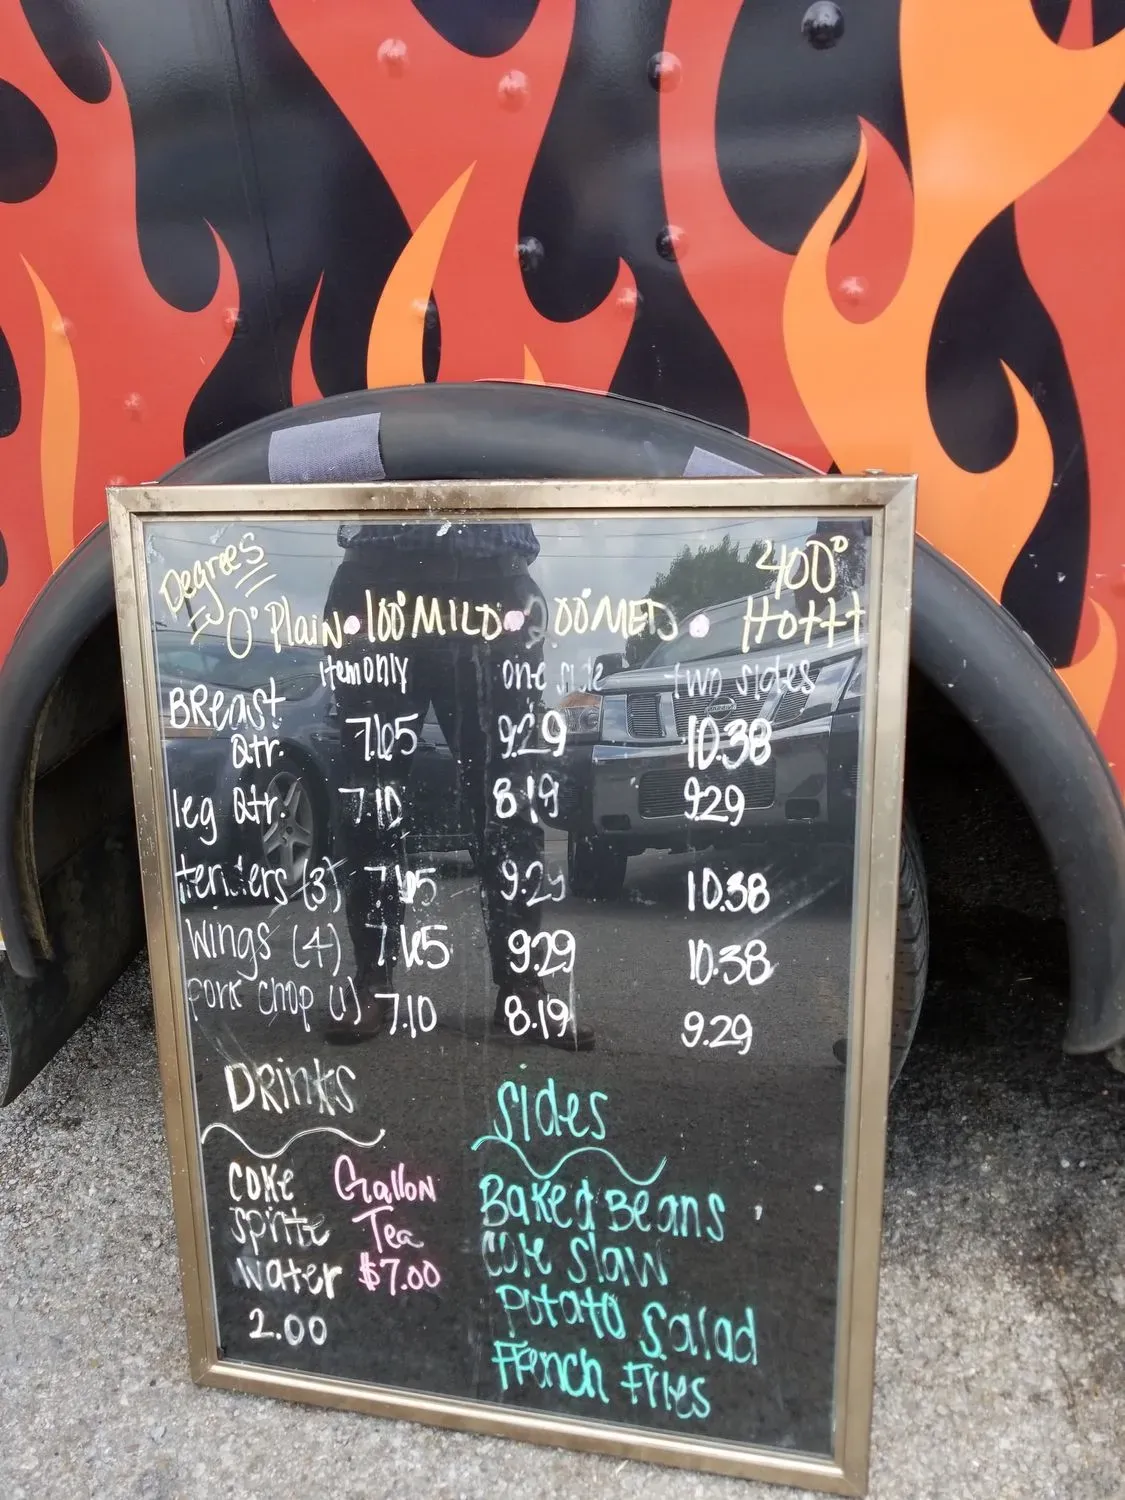 Degrees
400°
0° Plain • 100° MILD • 200° MED • Hottt
Item only one side two sides
BReast
Qtr. 7.65 9.29 10.38
leg Qtr. 7.10 8.19 9.29
tenders (3) 7.65 9.29 10.38
Wings (4) 7.65 9.29 10.38
pork chop (1) 7.10 8.19 9.29
DRinks
Sides
COKE Gallon
Sprite Tea
Water $7.00
2.00
Baked Beans
Cole Slaw
Potato Salad
French Fries